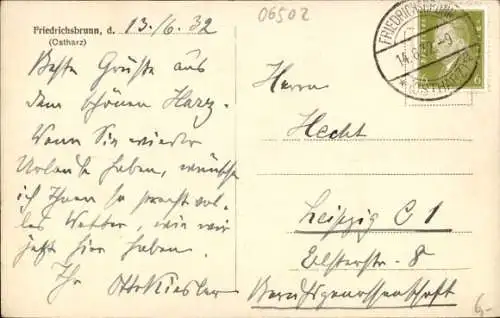 Friedrichsbrunn, d. 13./6. 32
(Ostharz)
06502
Beste Grüsse aus
dem schönen Harz.
Wenn Sie wieder
Urlaub haben, wünsche
ich Ihnen so prachtvol-
les Wetter, wie wir
jetzt hier haben.
Ihr Otto Kiesler
FRIEDRICHSBRUNN
14.6.32.-9
(OSTHARZ)
6
Herrn
Hecht
Leipzig C 1
Elsterstr. 8
Berufsgenossenschaft
6,-